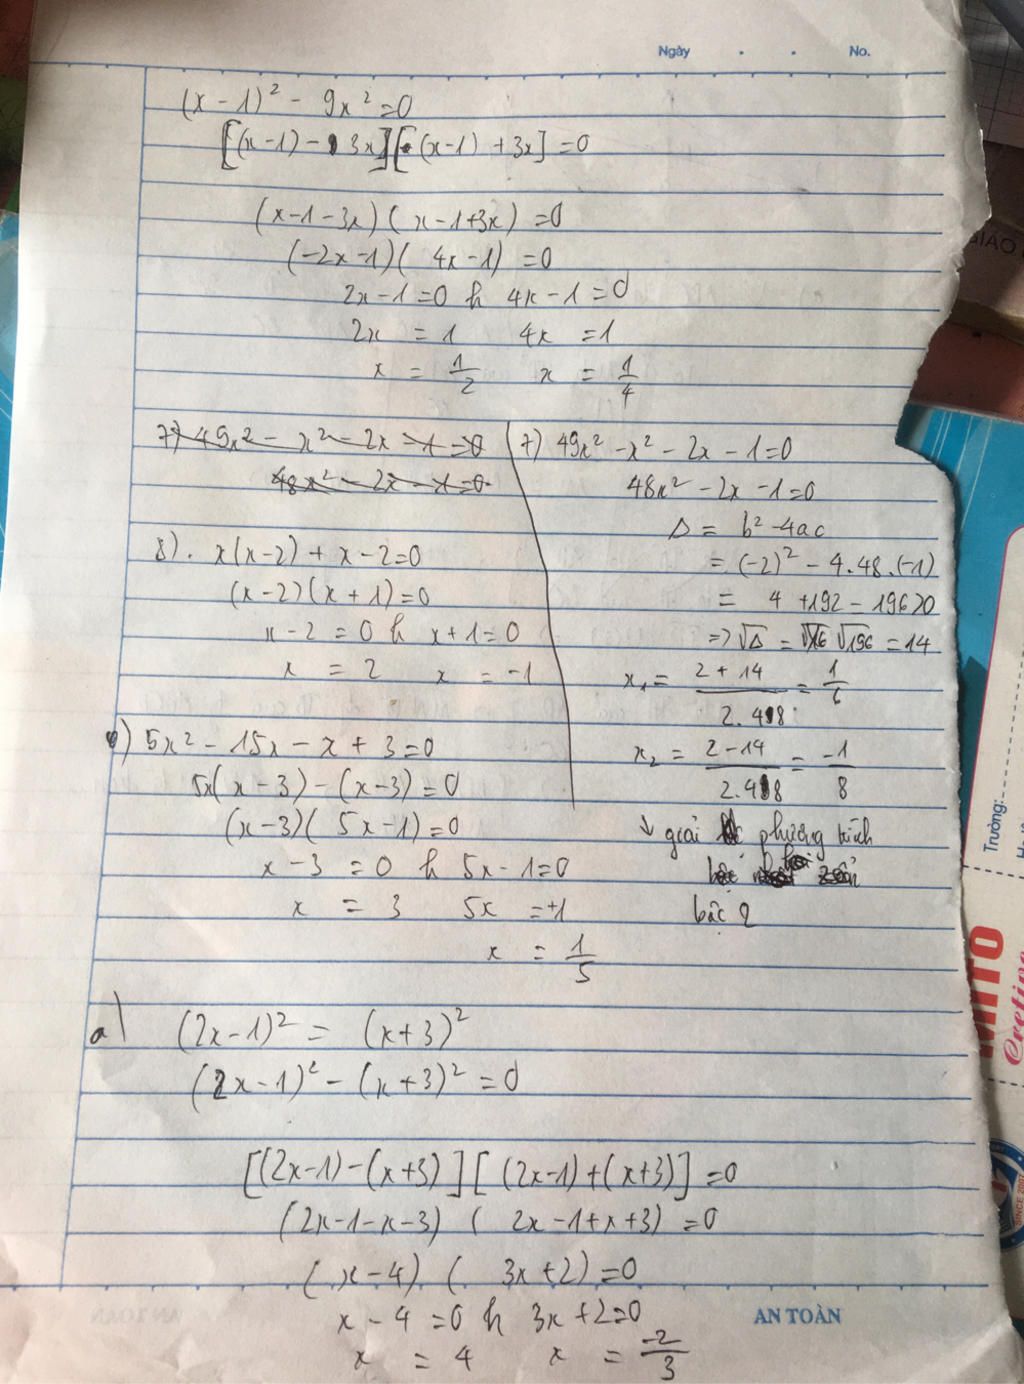 Ngày . . No.
(x - 1)² - 9x² = 0
[(x-1) - 3x][(x-1) + 3x] = 0
(x-1-3x)(x-1+3x) = 0
(-2x-1)(4x-1) = 0
2x-1=0 h 4x-1=0
2x = 1 4x = 1
x = 1/2 x = 1/4
7) 49x² - x² - 2x - 1 = 0
48x² - 2x - 1 = 0
8). x(x-2) + x - 2 = 0
(x-2)(x+1) = 0
x-2 = 0 h x+1 = 0
x = 2 x = -1
) 5x² - 15x - x + 3 = 0
5x(x-3) - (x-3) = 0
(x-3)(5x-1) = 0
x-3 = 0 h 5x-1 = 0
x = 3 5x = +1
x = 1/5
7) 49x² - x² - 2x - 1 = 0
48x² - 2x - 1 = 0
Δ = b² - 4ac
= (-2)² - 4.48.(-1)
= 4 + 192 = 196 > 0
=> √Δ = √196 = 14
x₁ = 2 + 14 / 2.48 = 1/6
x₂ = 2 - 14 / 2.48 = -1/8
↓ giải phương trình
bậc 2
a) (2x-1)² = (x+3)²
(2x-1)² - (x+3)² = 0
[(2x-1) - (x+3)][(2x-1) + (x+3)] = 0
(2x-1-x-3) (2x-1+x+3) = 0
(x-4) (3x+2) = 0
x - 4 = 0 h 3x+2 = 0
x = 4 x = -2/3
AN TOÀN
GIÁO
Trường:
MITO
SINCE